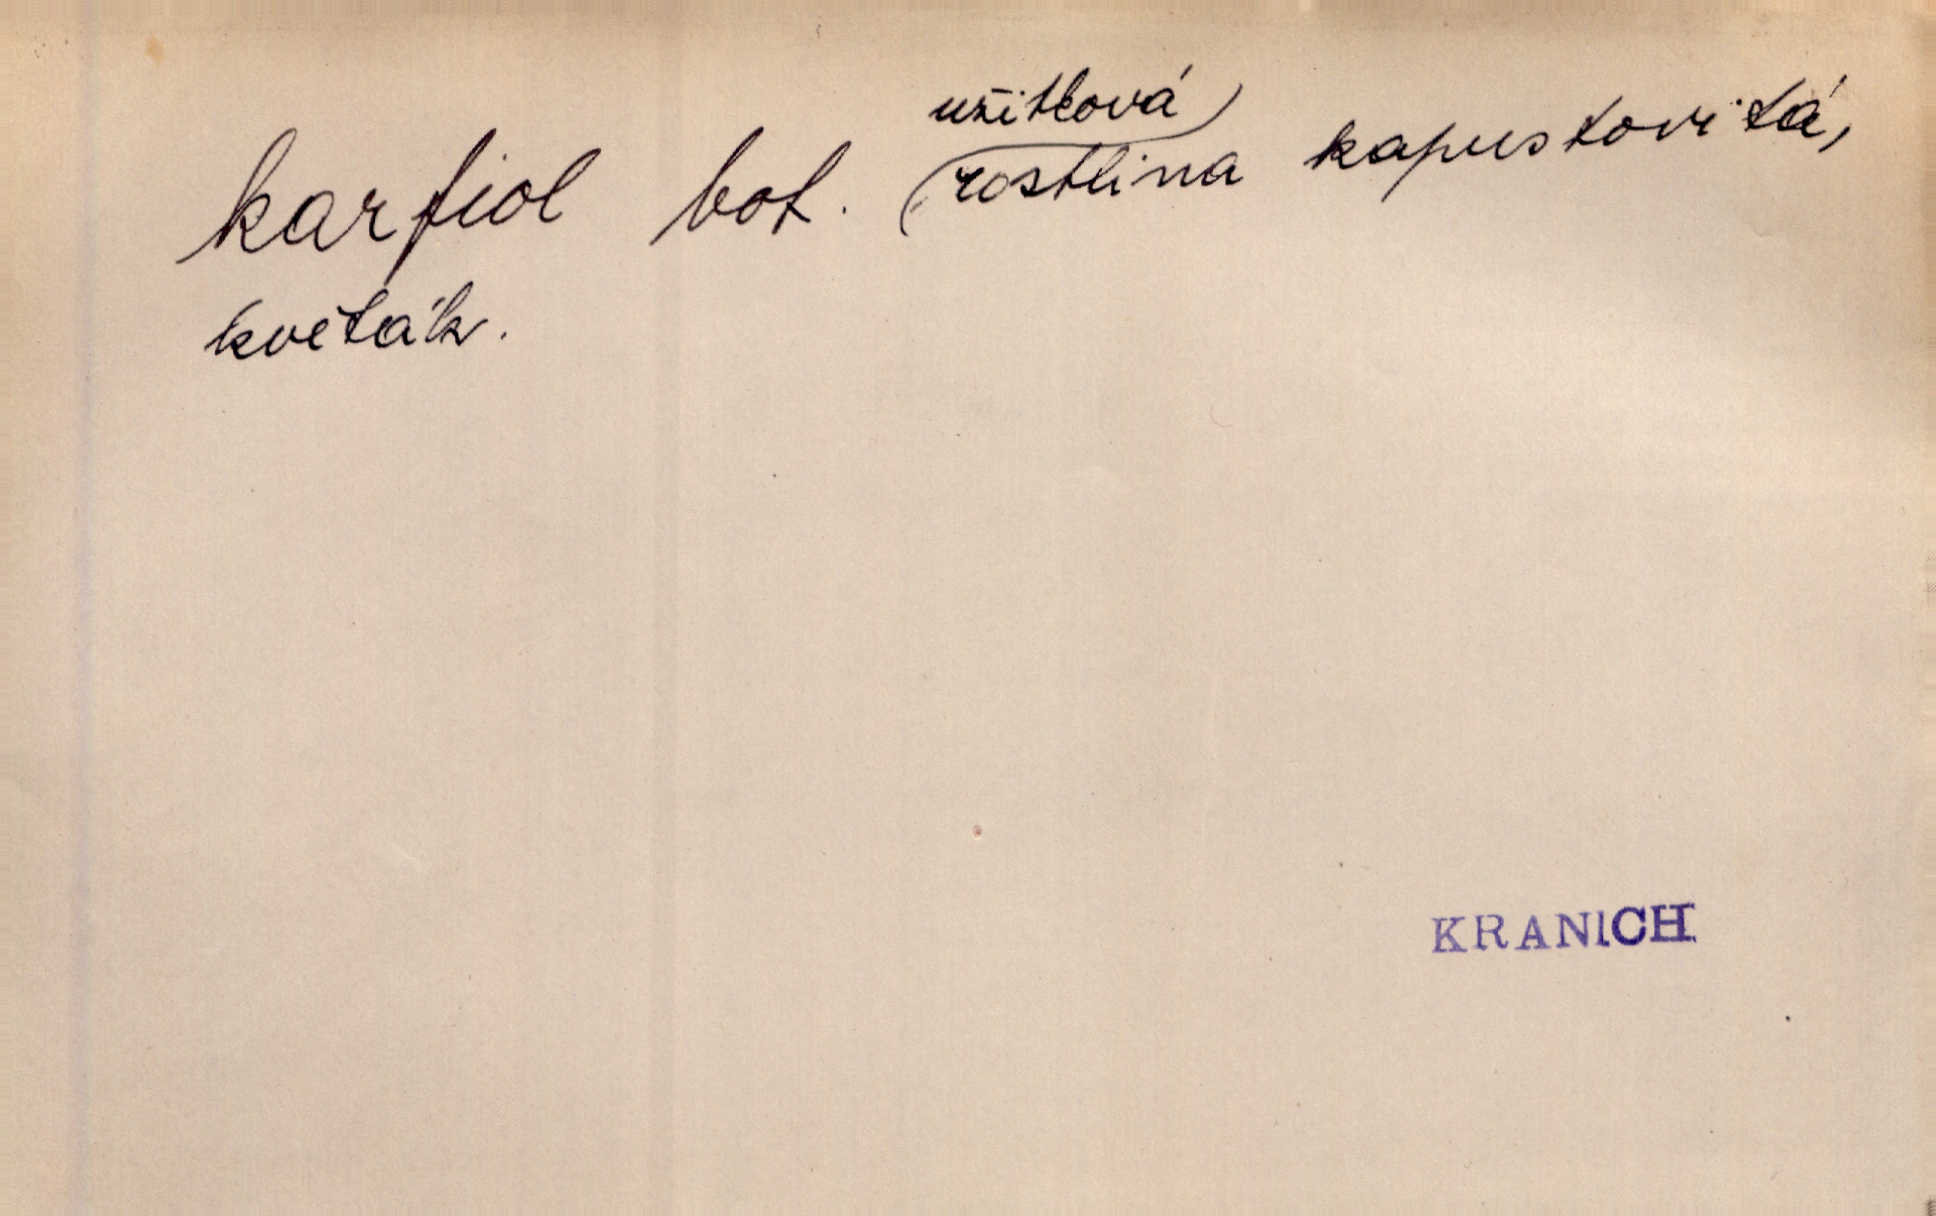 karfiol bot. užitková rostlina kapustovitá,
květák.
KRANICH